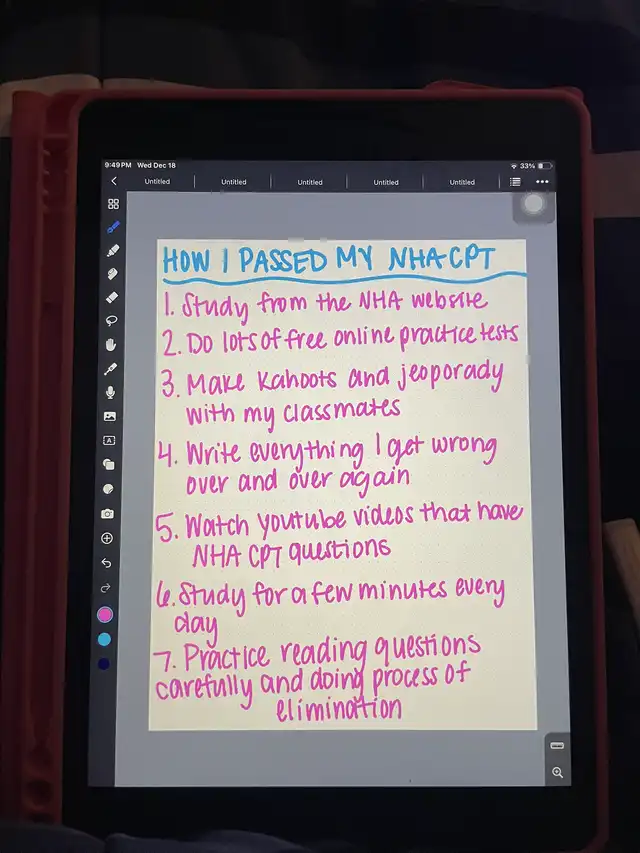 9:49 PM Wed Dec 18 33%
Untitled Untitled Untitled Untitled Untitled
HOW I PASSED MY NHA CPT
1. Study from the NHA website
2. Do lots of free online practice tests
3. Make Kahoots and jeoporady
with my classmates
4. Write everything I get wrong
over and over again
5. Watch youtube videos that have
NHA CPT questions
6. Study for a few minutes every
day
7. Practice reading questions
carefully and doing process of
elimination